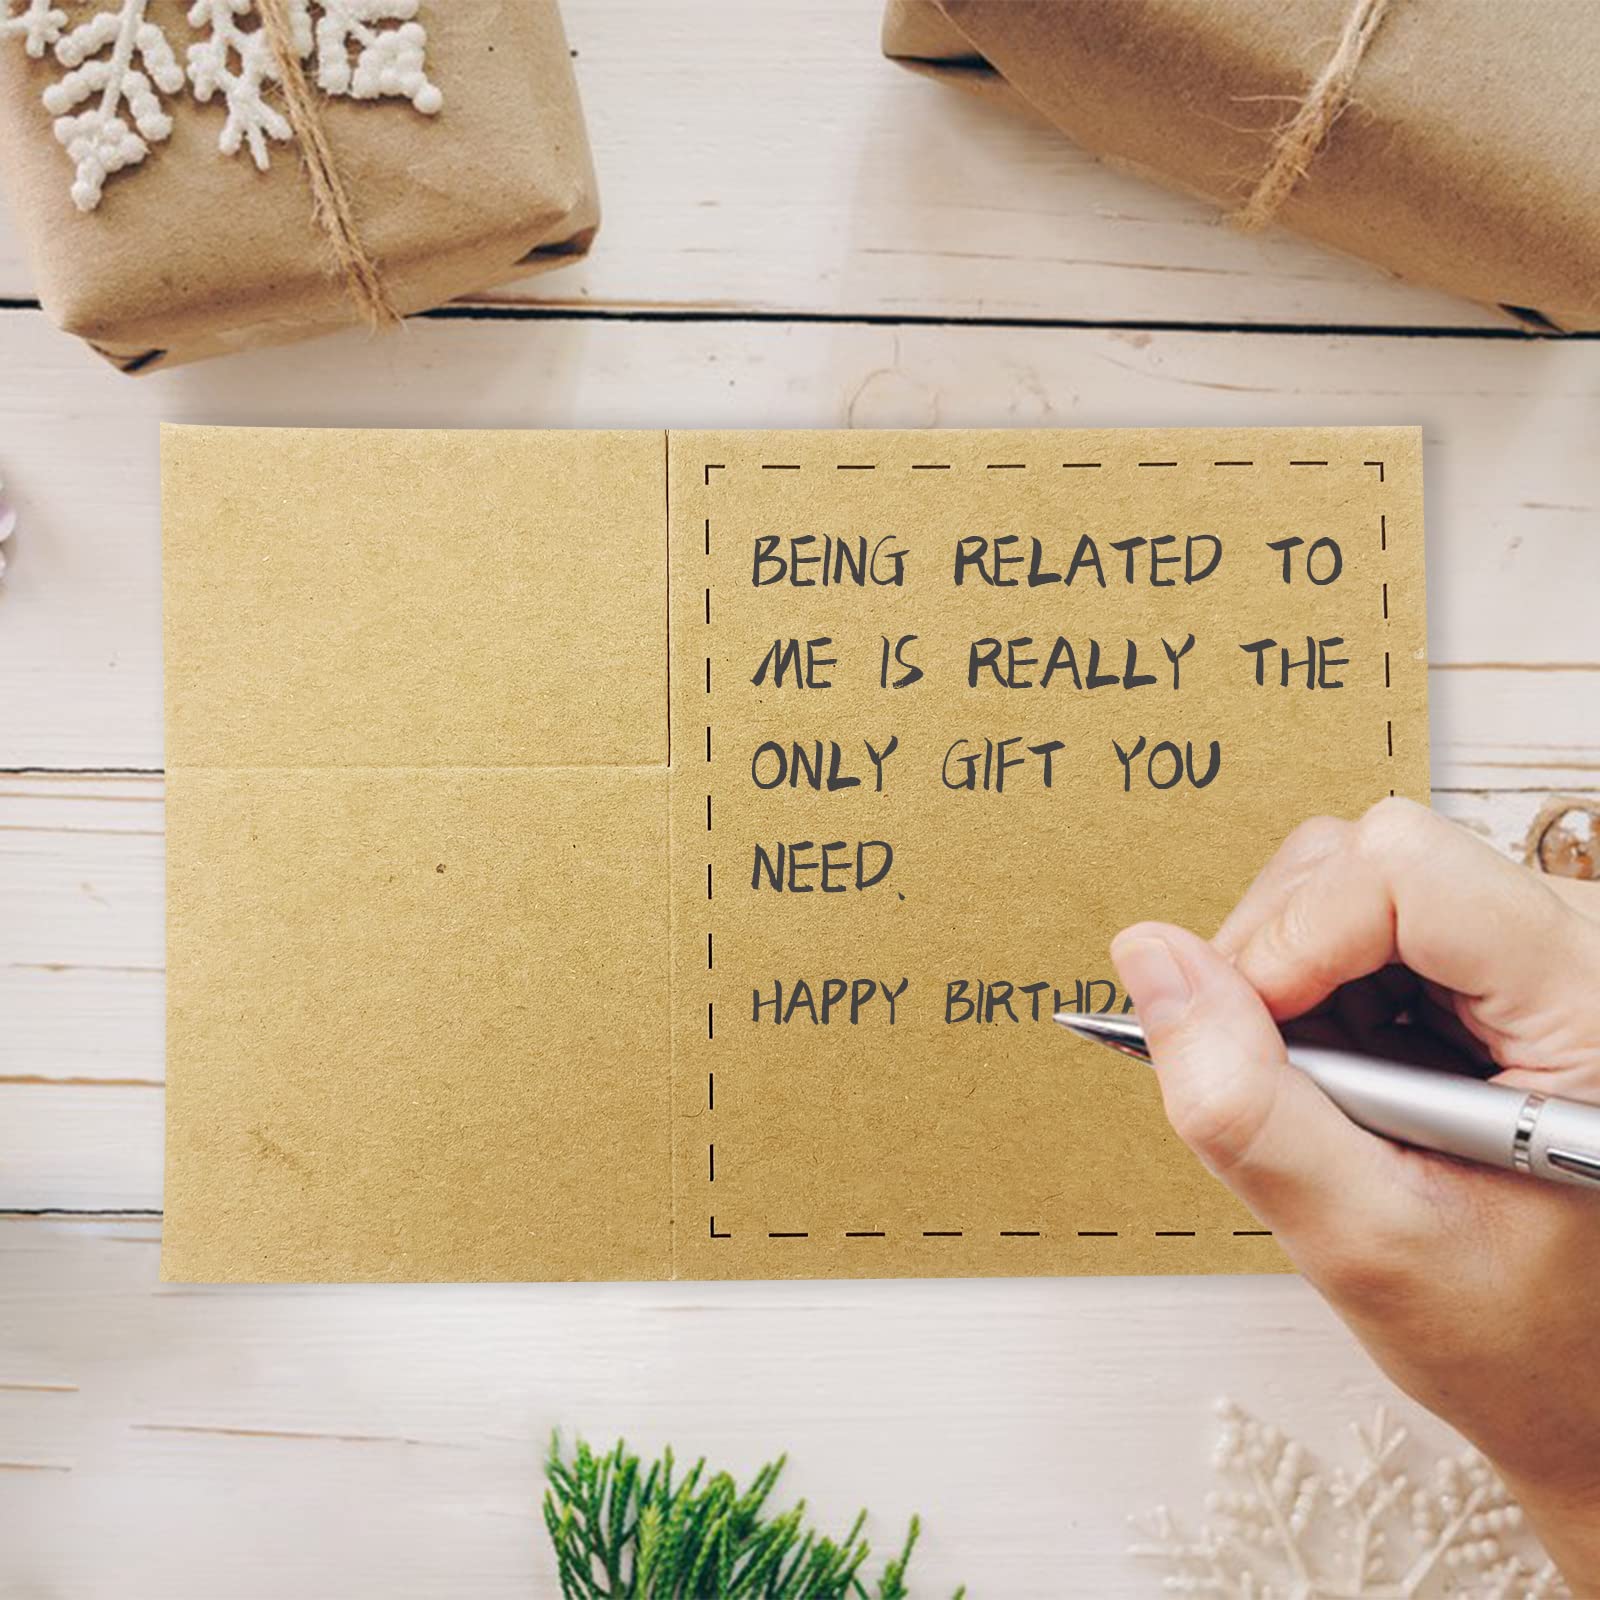 BEING RELATED TO
ME IS REALLY THE
ONLY GIFT YOU
NEED.
HAPPY BIRTHDA